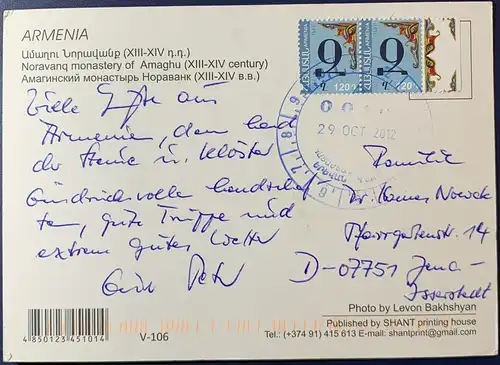 ARMENIA
Ամաղու Նորավանք (XIII-XIV դ.դ.)
Noravanq monastery of Amaghu (XIII-XIV century)
Амагинский монастырь Нораванк (XIII-XIV в.в.)
ՀԱՅԱՍՏԱՆ ARMENIA
120
120
29 OCT 2012
Viele Grüße aus
Armenien, dem Land
der Steine u. Klöster
Eindrucksvolle Landschaf-
ten, gute Truppe und
extrem gutes Wetter
Euer Peter
Familie
Dr. Nowak
Pfarrgartenstr. 14
D-07751 Jena-
Isserstedt
Photo by Levon Bakhshyan
Published by SHANT printing house
Tel.: (+374 91) 415 613 E-mail: shantprint@gmail.com
4 850123 451014
V-106